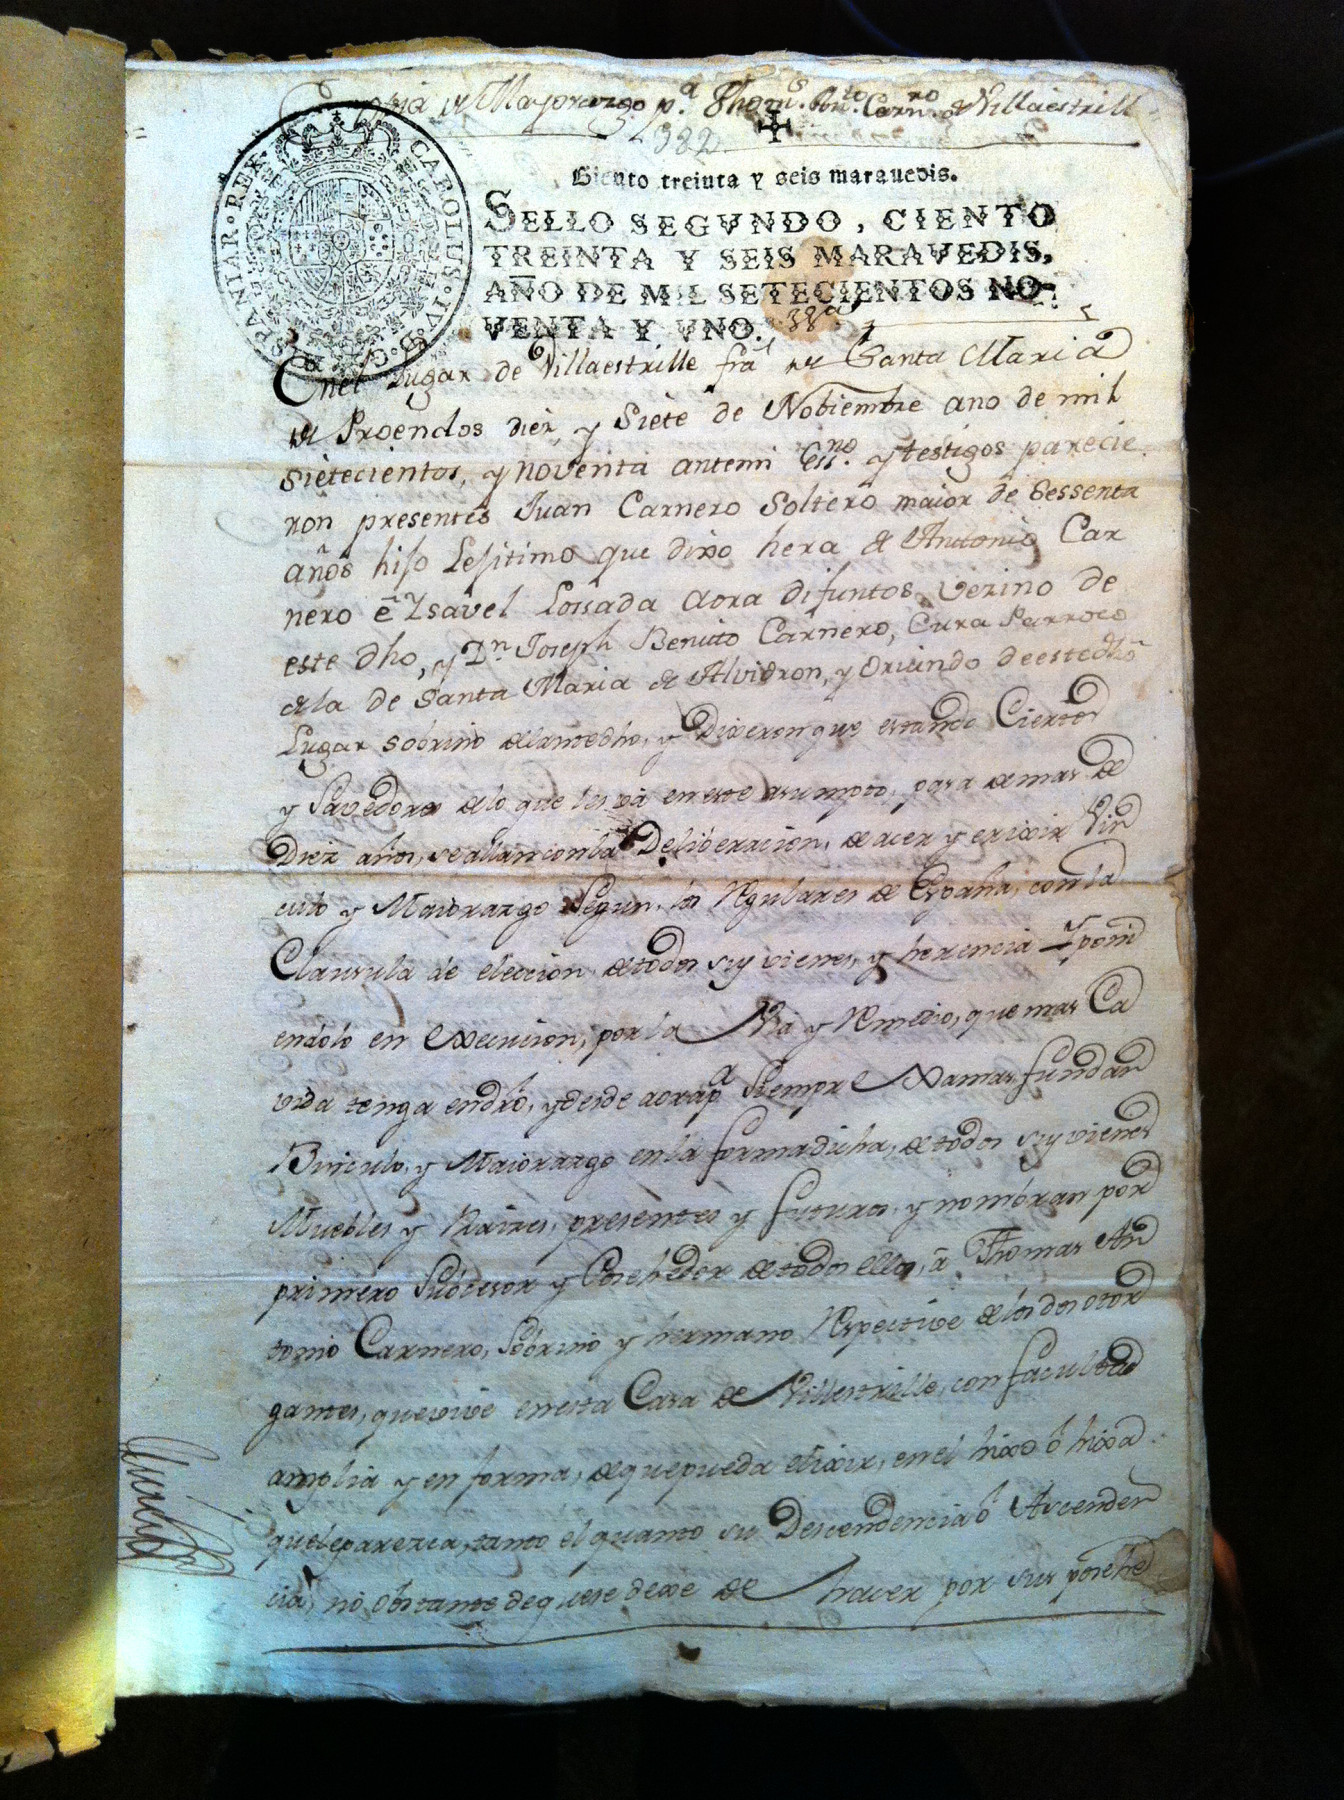 Copia de Mayorazgo p.ª Thom.s Ant.o Carn.ro de Villaestrille
382
Ciento treinta y seis maravedis.
SELLO SEGVNDO, CIENTO
TREINTA Y SEIS MARAVEDIS,
AÑO DE MIL SETECIENTOS NO-
VENTA Y VNO.
CAROLUS·IV·D·G·HISPANIAR·REX·
Enel Lugar de Villaestrille fra de Santa Maria
de Proendos diez, y Siete de Nobiembre ano de mil
sietecientos, y noventa antemi Ess.no y testigos parecie
ron presentes Juan Carnero Soltero maior de Sessenta
años hijo Lejitimo que dixo hera de Antonio Car
nero e Ysavel Lossada aora difuntos vezino de
este dho, y Dn. Joseph Benitto Carnero, Cura Parroco
dela de Santa Maria de Alvidron, y Oriundo de este dho
Lugar sobrino del antedho, y Dixeron que estando Ciertos
y Savedores de lo que les vá en este asumpto, pasa de mas de
Diez años, se allan con la Deliveracion, de acer y erixir Vin
culo y Maiorazgo Segun los Regulares de España, con la
Clausula de eleccion de todos sus vienes, y herencia Y poni
endolo en execucion, por la Via y Remedio, que mas Ca
vida tenga endro, y desde aora pa Siempre Xamas, fundan
Binculo, y Maiorazgo en la forma dicha, de todos sus vienes
Muebles y Raizes, presentes y futuros, y nombran por
primero Subcesor y Posehedor de todos ellos, a Thomas An
tonio Carnero, Sobrino y hermano Respective de los dos otor
gantes, que vive en esta Casa de Villestrille, con facultad
amplia y en forma, de que pueda elixir, en el hixo ó hixa
quele parezca, tanto el quanto su Descendencia ó Ascenden
cia, no obstante de quese dexe de hacer por sus posehe